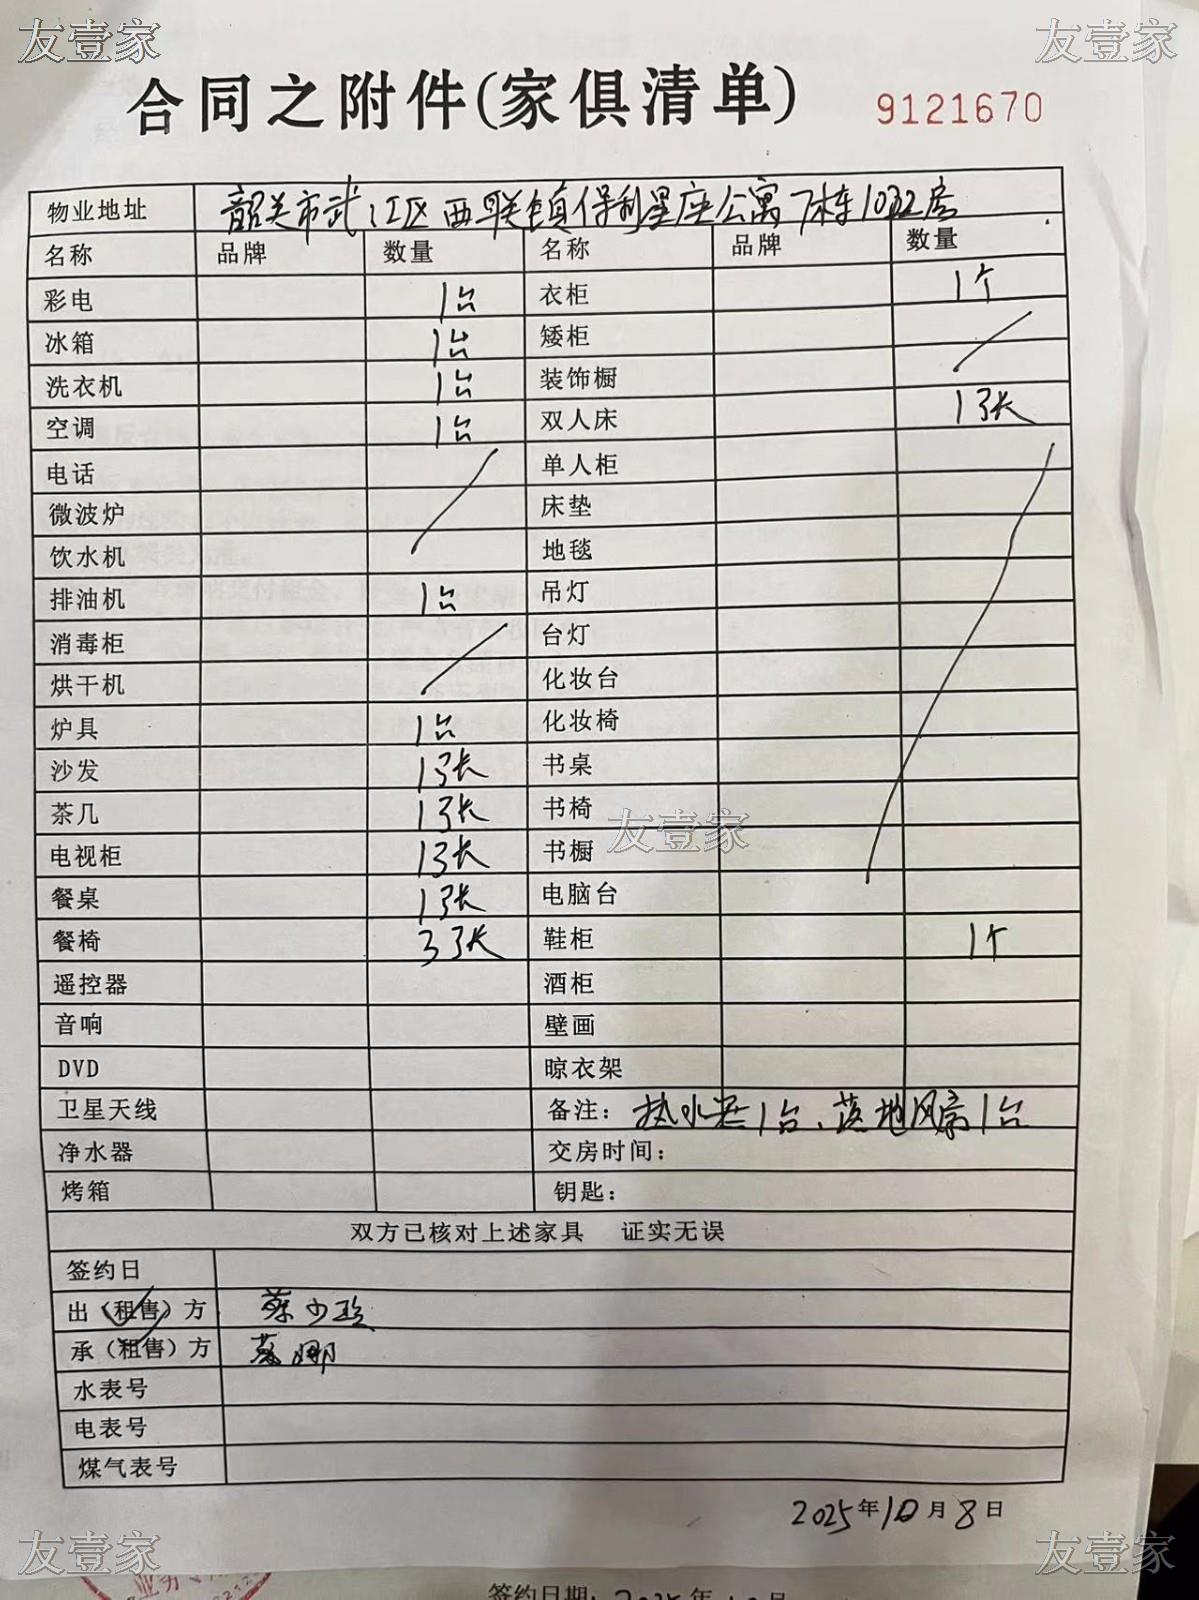 友壹家 友壹家
合同之附件(家俱清单) 9121670
物业地址 韶关市武江区西联镇保利星座公寓7栋1032房
名称 品牌 数量 名称 品牌 数量
彩电 1台 衣柜 1个
冰箱 1台 矮柜
洗衣机 1台 装饰橱
空调 1台 双人床 1张
电话 单人柜
微波炉 床垫
饮水机 地毯
排油机 1台 吊灯
消毒柜 台灯
烘干机 化妆台
炉具 1台 化妆椅
沙发 1张 书桌
茶几 1张 书椅
友壹家
电视柜 1张 书橱
餐桌 1张 电脑台
餐椅 3张 鞋柜 1个
遥控器 酒柜
音响 壁画
DVD 晾衣架
卫星天线 备注：热水器1台、落地风扇1台
净水器 交房时间：
烤箱 钥匙：
双方已核对上述家具 证实无误
签约日
出（租售）方
承（租售）方
水表号
电表号
煤气表号
2025年10月8日
友壹家 友壹家
签约日期：2025年10月